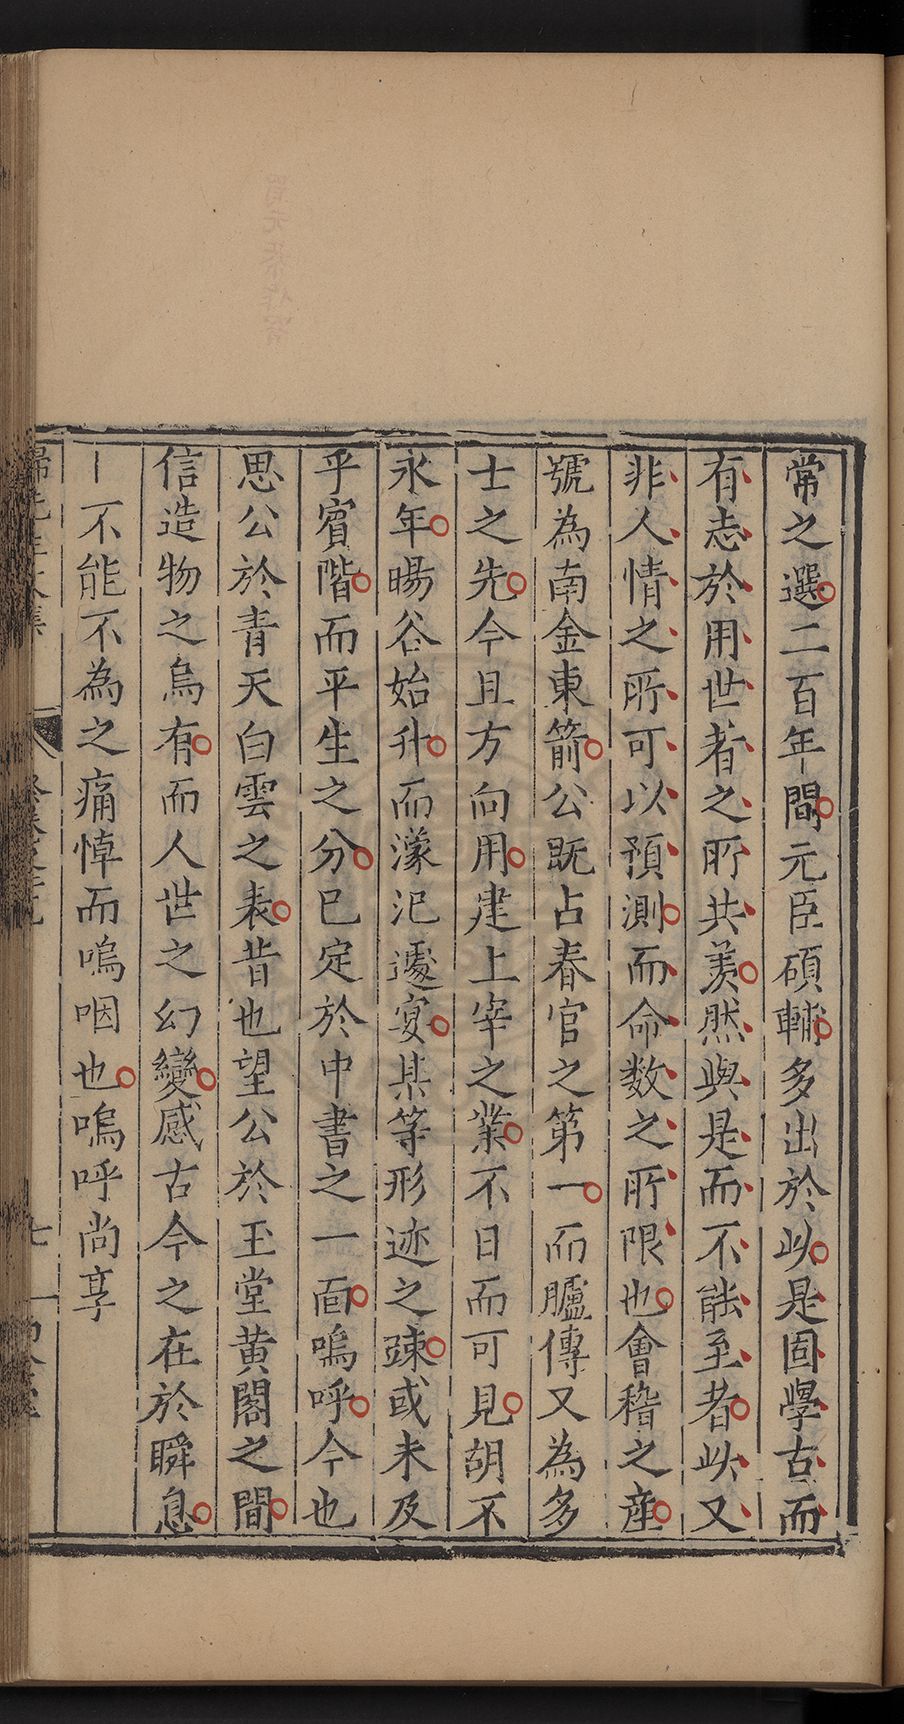 常之選二百年間元臣碩輔多出於此是固學古而
有志於用世者之所共羨然與是而不能至者此又
非人情之所可以預測而命数之所限也會稽之産
號為南金東箭公既占春官之第一而臚傳又為多
士之先今且方向用建上宰之業不日而可見胡不
永年暘谷始升而濛汜遽宴某等形迹之踈或未及
乎賓階而平生之分已定於中書之一面嗚呼今也
思公於青天白雲之表昔也望公於玉堂黄閣之間
信造物之烏有而人世之幻變感古今之在於瞬息
不能不為之痛悼而嗚咽也嗚呼尚享
七